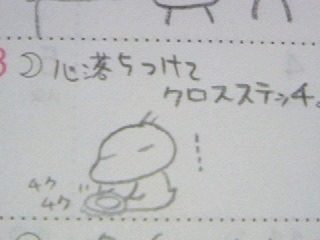 3 2) 心落ちつけて
クロスステッチ。
チク
チク